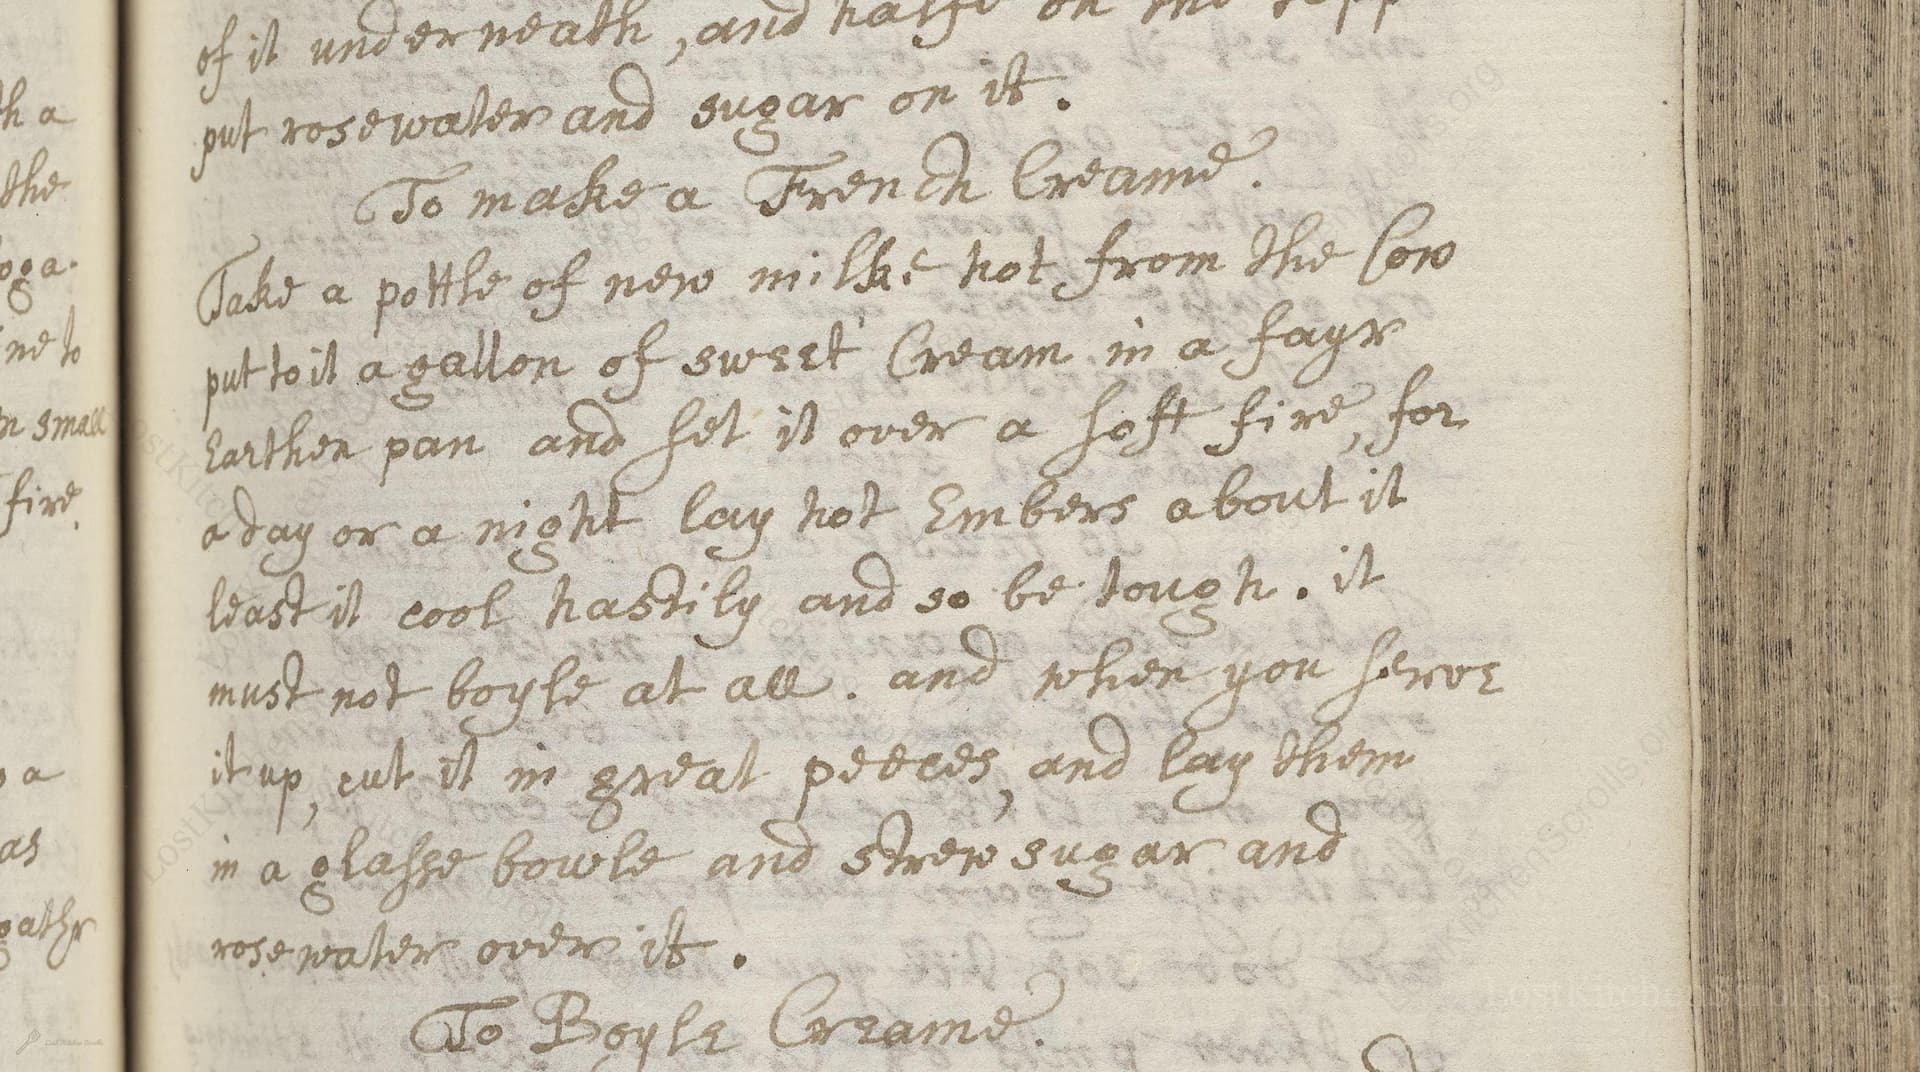 of it underneath, and halfe on the topp
put rosewater and sugar on it.
To make a French Creame.
Take a pottle of new milke hot from the Cow
put to it a gallon of sweet Cream in a fayr
Earthen pan and set it over a soft fire, for
a day or a night lay hot Embers about it
least it cool hastily and so be tough. it
must not boyle at all. and when you serve
it up, cut it in great peeces, and lay them
in a glasse bowle and strew sugar and
rosewater over it.
To Boyle Creame.
h a
the
oga.
ne to
n small
fire.
a
as
gathr
LostKitchenScrolls.org